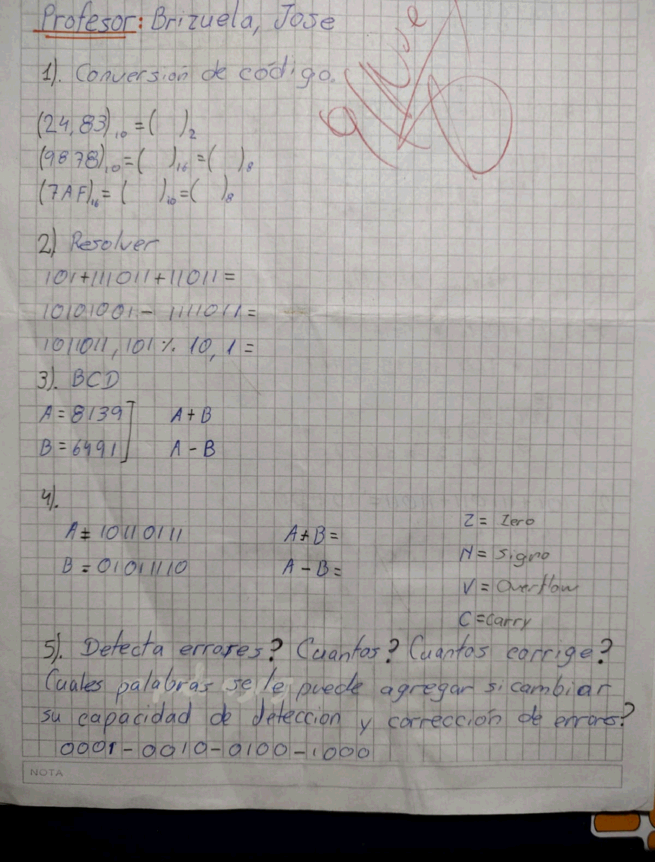 Profesor: Brizuela, Jose
1). Conversión de código.
(24,83)₁₀ = ( )₂
(9878)₁₀ = ( )₁₆ = ( )₈
(7AF)₁₆ = ( )₁₀ = ( )₈
2) Resolver
101+111011+11011=
10101001 - 1111011=
1011011,101 % 10,1=
3). BCD
A = 8139 A + B
B = 6491 A - B
4).
A = 10110111 A+B=
B = 01011110 A-B=
Z = Zero
N = Signo
V = Overflow
C = Carry
5). Detecta errores? Cuantos? Cuantos corrige?
Cuales palabras se le puede agregar si cambiar
su capacidad de deteccion y corrección de errores?
0001 - 0010 - 0100 - 1000
NOTA